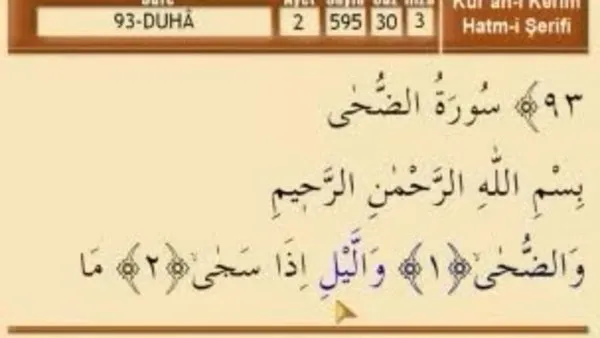 Sure
Ayet
Sayfa
Cüz
Hizb
Kur'an-ı Kerim
93-DUHÂ
2
595
30
3
Hatm-i Şerifi
٩٣﴾ سُورَةُ الضُّحٰى
بِسْمِ اللّٰهِ الرَّحْمٰنِ الرَّحٖيمِ
وَالضُّحٰىۙ﴿١﴾ وَالَّيْلِ اِذَا سَجٰىۙ﴿٢﴾ مَا